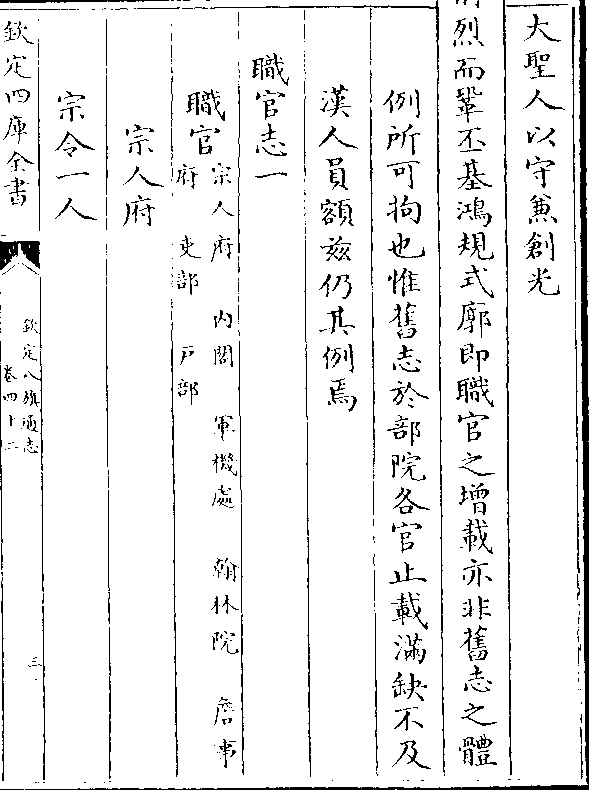 大聖人以守兼創光
前烈而鞏丕基鴻規式廓即職官之增載亦非舊志之體
例所可拘也惟舊志於部院各官止載滿缺不及
漢人員額兹仍其例焉
職官志一
職官宗人府 内閣 軍機處 翰林院 詹事
府 吏部 戸部
宗人府
宗令一人
欽定四庫全書
欽定八旗通志
卷四十二
三